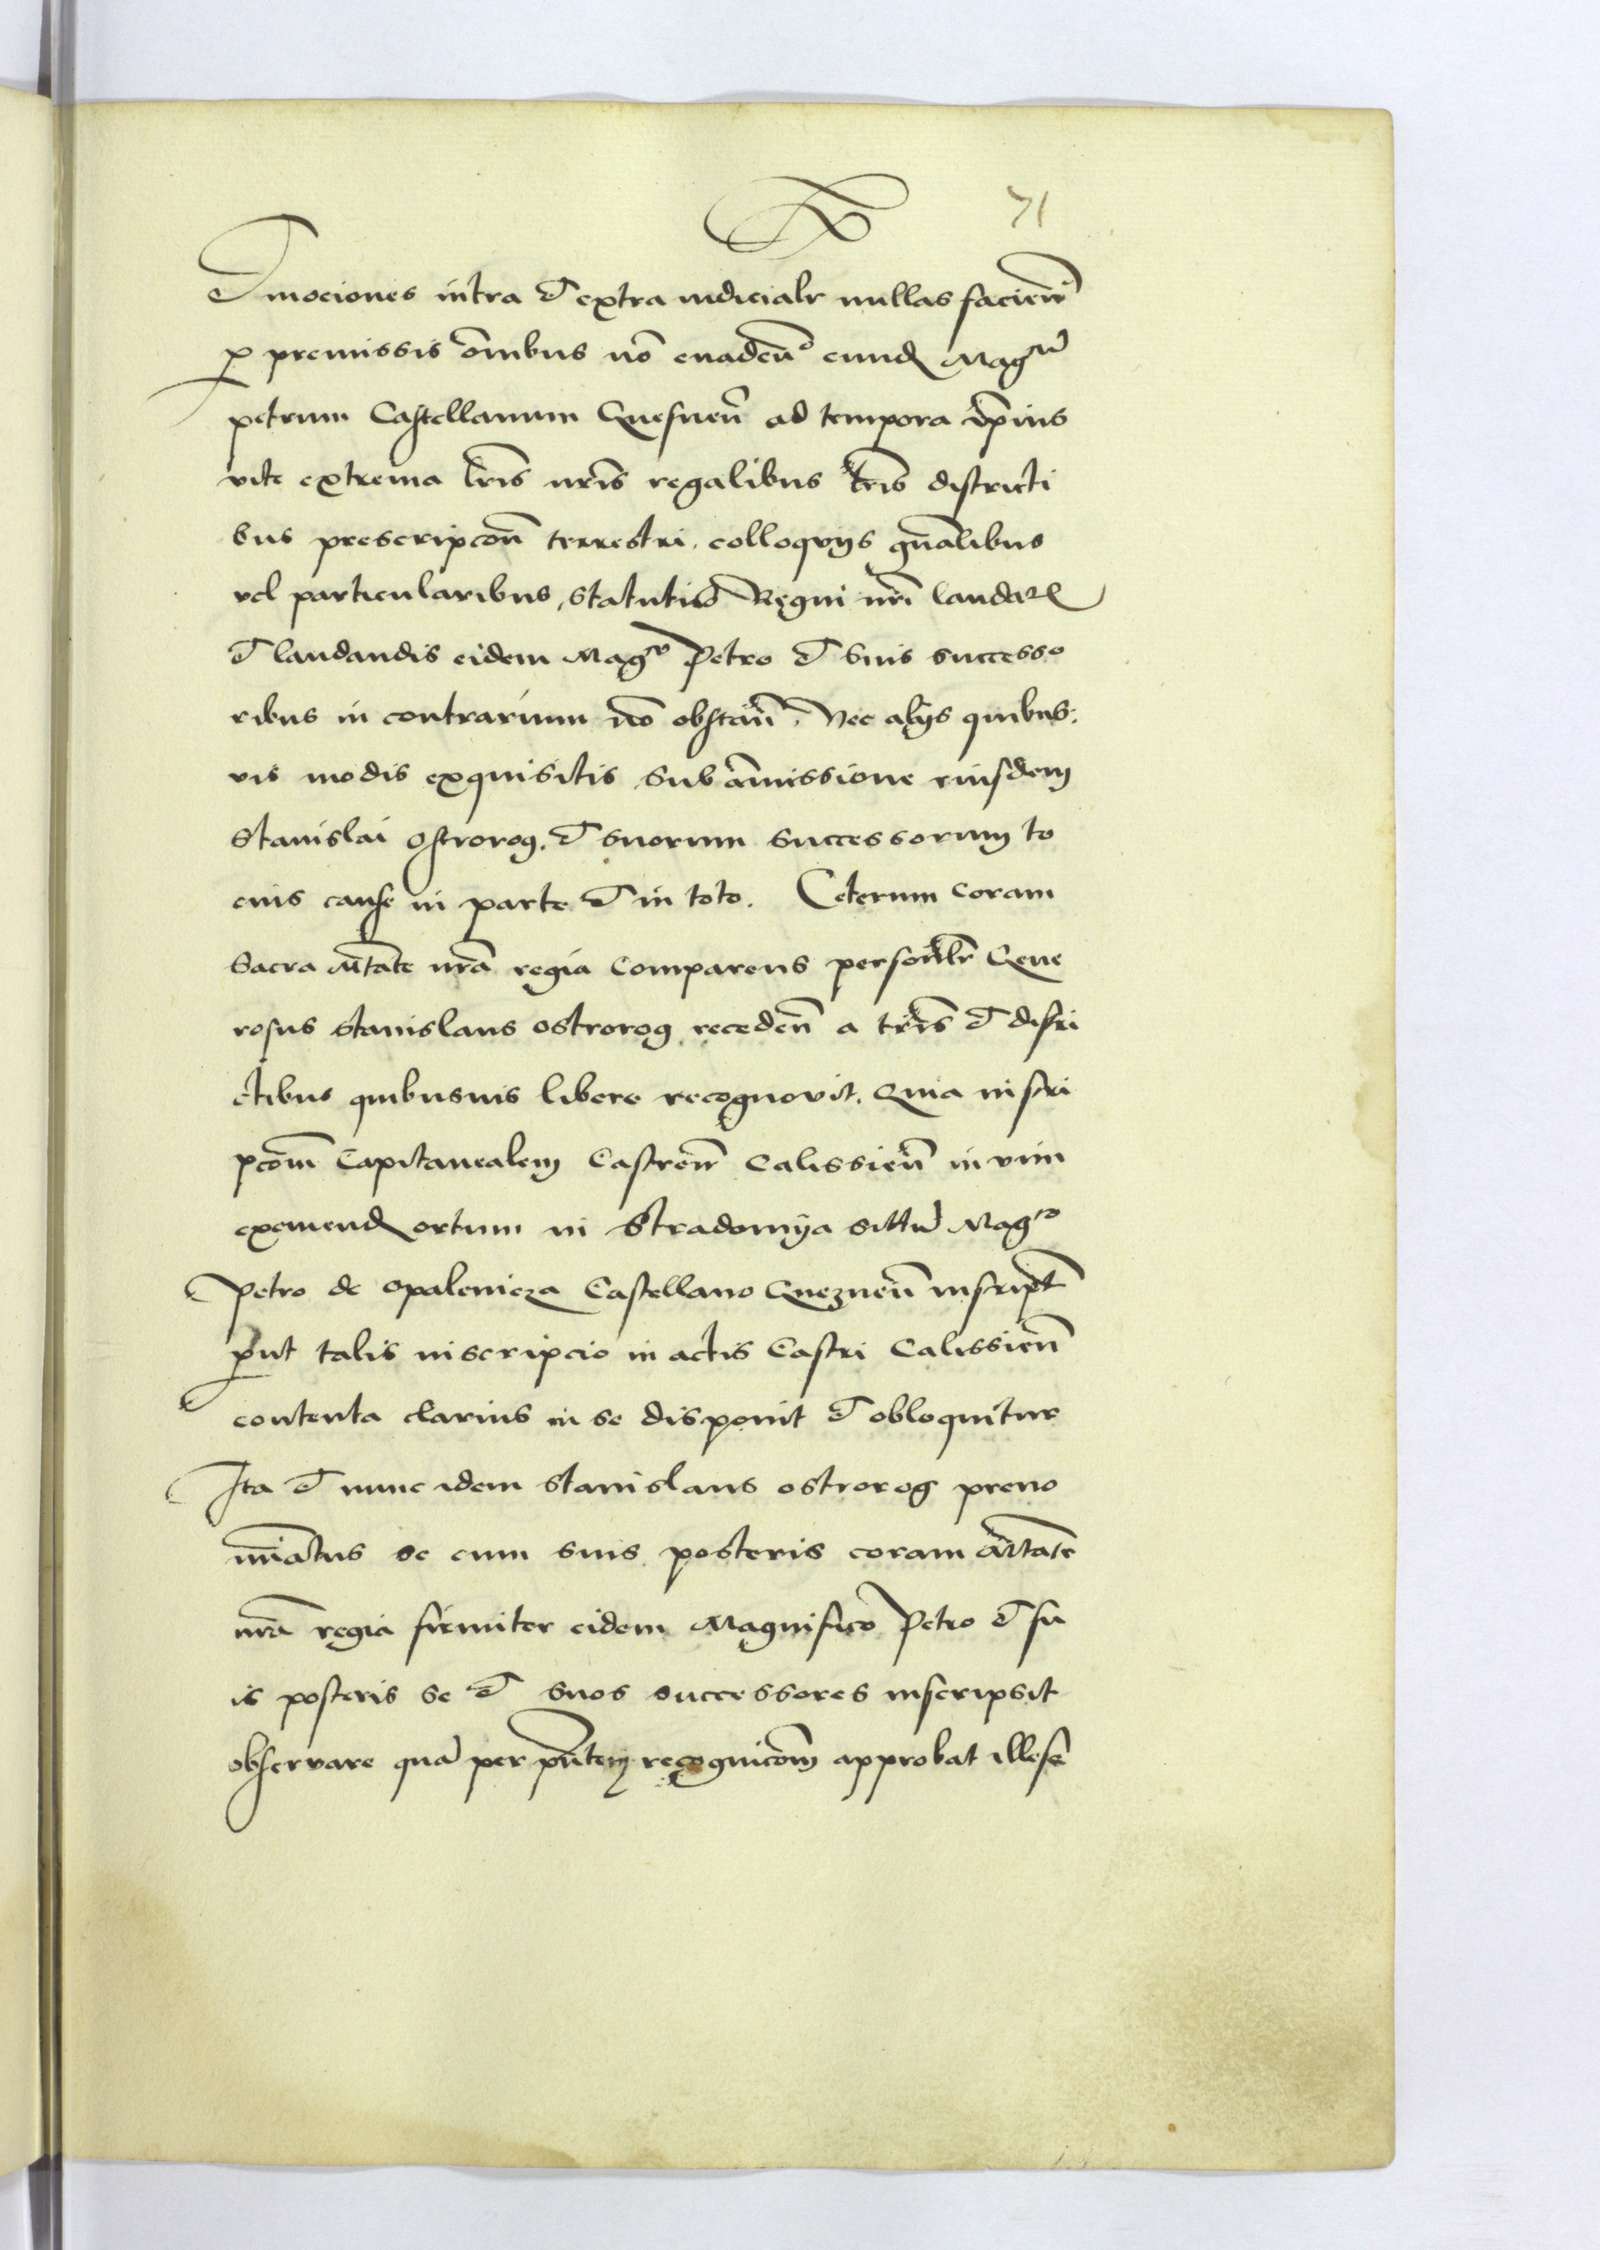 71
Et mociones intra et extra iudicialr nullas facien̄
p premissis om̄ibus no̅ euaden̄ eund Magcū
petrum Castellanum Gnesnen̄ ad tempora ip̄ius
vite extrema lr̄is nr̄is regalibus tr̄is districti
bus prescripcōn̄ terrestri. colloquijs gn̄alibus
vel particularibus, statutis Regni nr̄i laudat
et laudandis eidem Magco Petro et suis successo
ribus in contrarium no̅ obstan̄. Nec alijs quibus:
vis modis exquisitis sub am̄issione eiusdem
Stanislai Ostrorog. et suorum successorum to
cius cause in parte et in toto. Ceterum coram
Sacra Mtate nr̄a regia comparens personlr Gene
rosus Stanislaus ostrorog recedēn̄ a tr̄is et distri
ctibus quibusuis libere recognovit. Quia inscri
pcom̄ Capitanealem Castren̄ Calissien̄ in vim
exemend ortum in Stradomya sittū Magco
Petro de opalenicza Castellano Gneznen̄ inscript
put talis inscripcio in actis Castri Calissien̄
contenta clarius in se disponit et obloquitur
Ita et nunc idem Stanislaus ostrorog preno
mi̅atus se cum suis posteris coram Mtate
nr̄a regia firmiter eidem Magnifico Petro et su
is posteris se et suos successores inscripsit
observare quā per pn̄tem recognicom̄ approbat illese